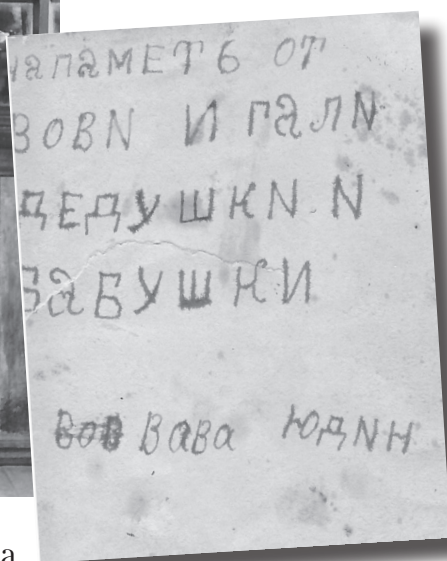 НАПАМЕТЬ ОТ
ВОВИ И ГАЛИ
ДЕДУШКИ И
БАБУШКИ
Вава ЮДИН
а